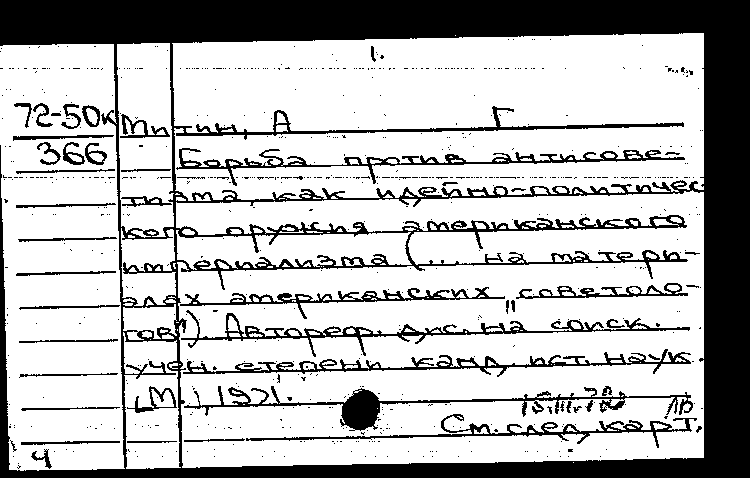 1.
72-50к Митин, А Г
366 Борьба против антисове-
тизма, как идейно-политичес-
кого оружия американского
империализма (... на матери-
алах американских "советоло-
гов"). Автореф. дис. на соиск.
учен. степени канд. ист. наук.
[М.], 1971.
15.III.72 ЛВ
См. след. карт.
4